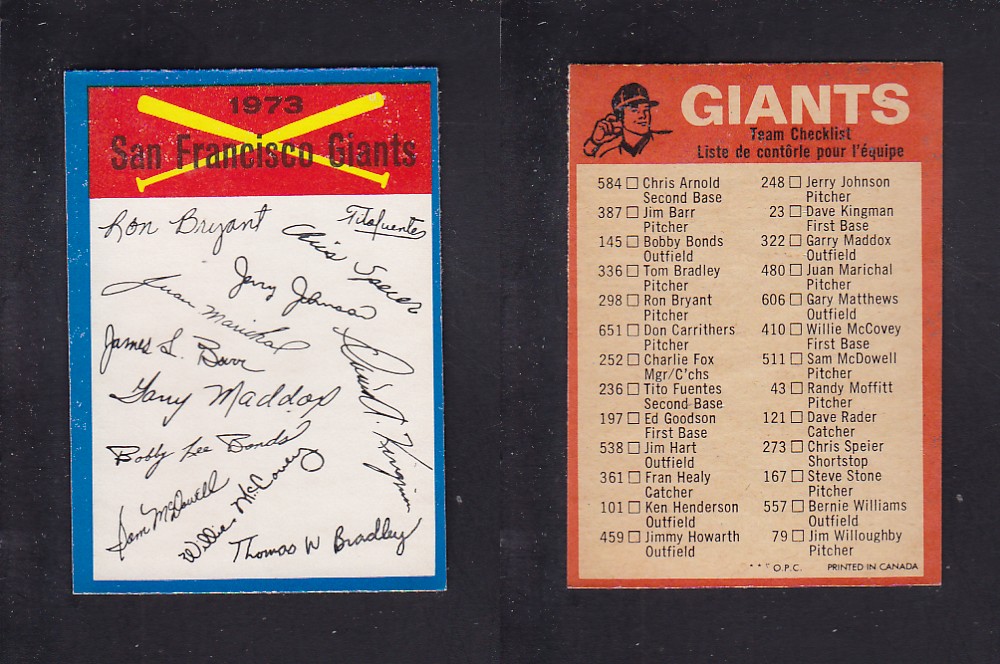 1973
San Francisco Giants
Ron Bryant
Tito Fuentes
Chris Speier
Jerry Johnson
Juan Marichal
James L. Barr
David A. Kingman
Gary Maddox
Bobby Lee Bonds
Sam McDowell
Willie McCovey
Thomas W Bradley
GIANTS
Team Checklist
Liste de contôrle pour l'équipe
584 Chris Arnold
Second Base
387 Jim Barr
Pitcher
145 Bobby Bonds
Outfield
336 Tom Bradley
Pitcher
298 Ron Bryant
Pitcher
651 Don Carrithers
Pitcher
252 Charlie Fox
Mgr/C'chs
236 Tito Fuentes
Second Base
197 Ed Goodson
First Base
538 Jim Hart
Outfield
361 Fran Healy
Catcher
101 Ken Henderson
Outfield
459 Jimmy Howarth
Outfield
248 Jerry Johnson
Pitcher
23 Dave Kingman
First Base
322 Garry Maddox
Outfield
480 Juan Marichal
Pitcher
606 Gary Matthews
Outfield
410 Willie McCovey
First Base
511 Sam McDowell
Pitcher
43 Randy Moffitt
Pitcher
121 Dave Rader
Catcher
273 Chris Speier
Shortstop
167 Steve Stone
Pitcher
557 Bernie Williams
Outfield
79 Jim Willoughby
Pitcher
* * * O.P.C. PRINTED IN CANADA